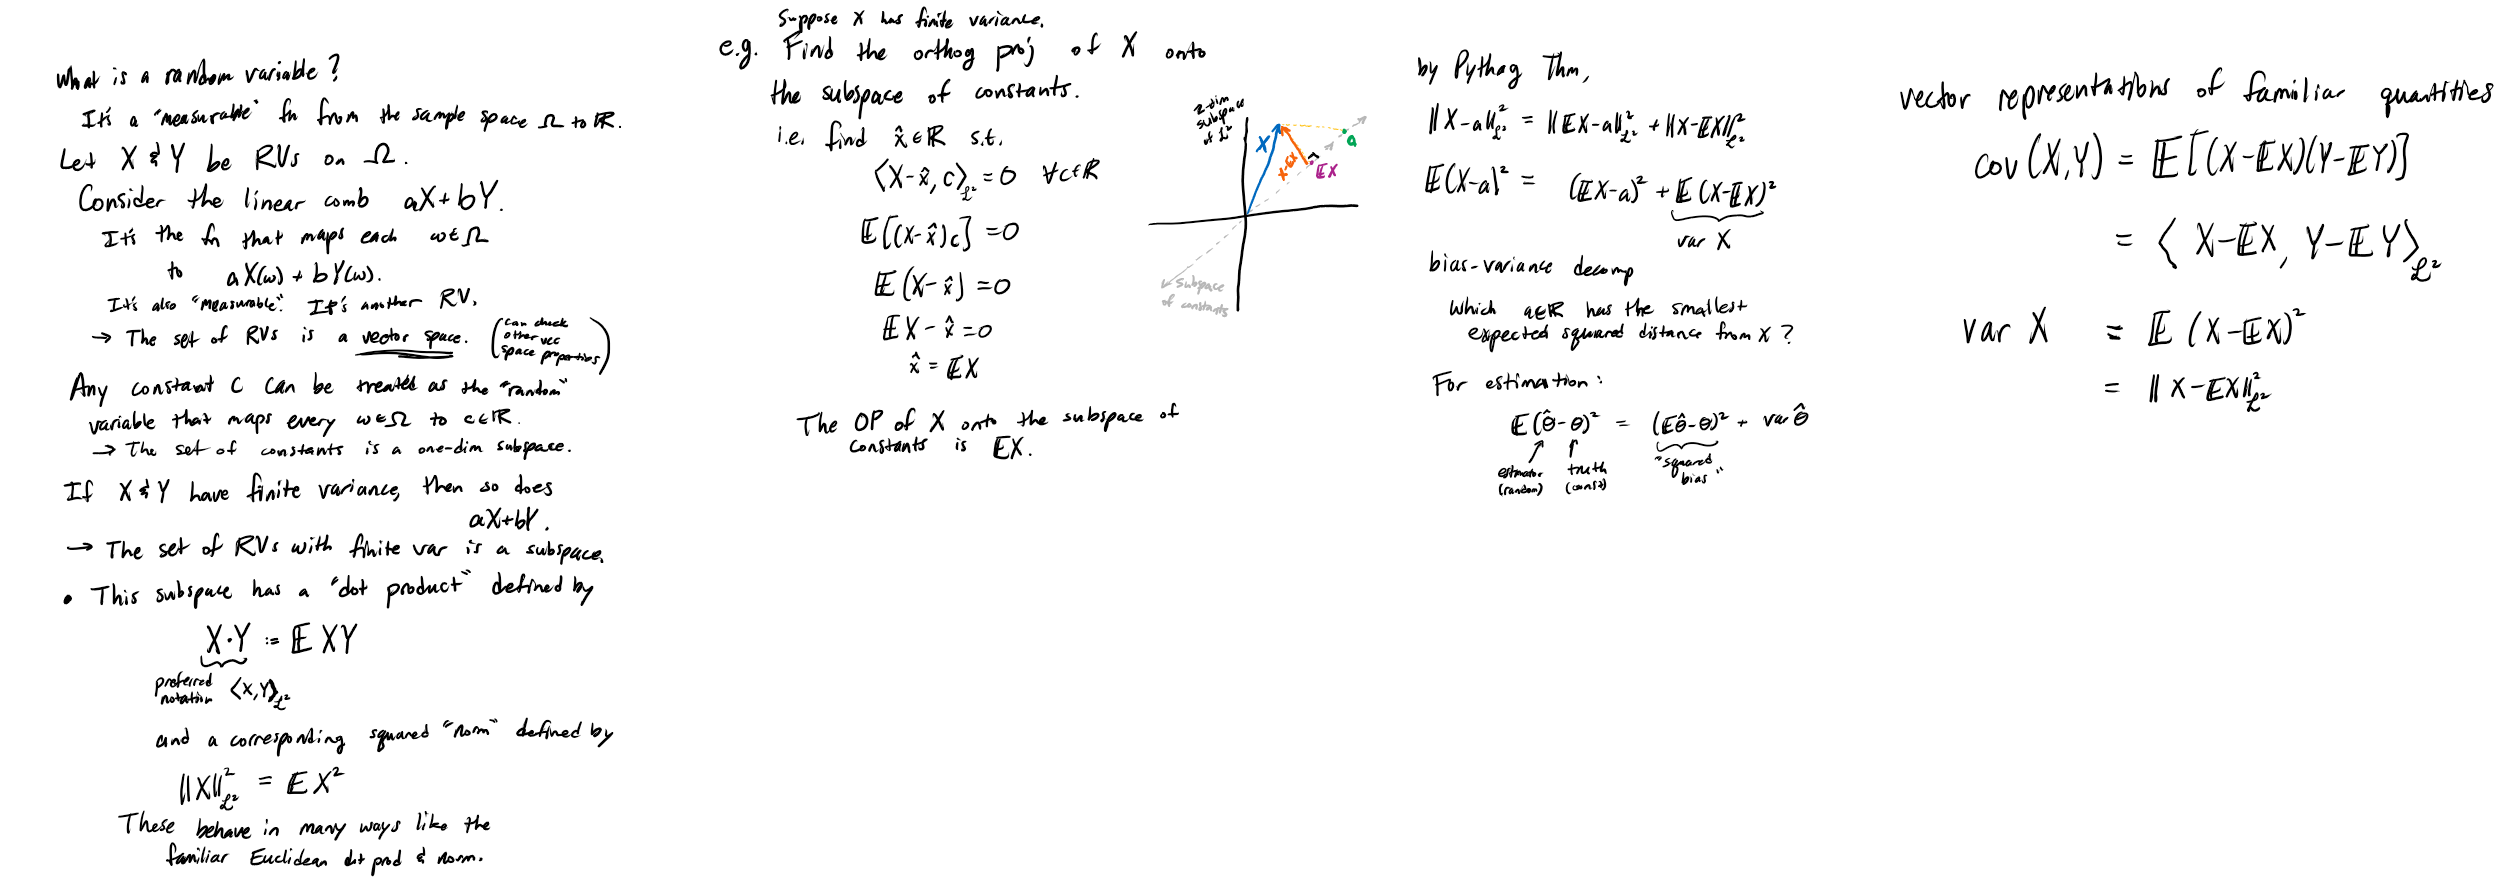 What is a random variable?
It's a "measurable" fn from the sample space Ω to ℝ.
Let X & Y be RVs on Ω.
Consider the linear comb aX+bY.
It's the fn that maps each ω∈Ω
to aX(ω) + bY(ω).
It's also "measurable". It's another RV.
→ The set of RVs is a vector space. (can check
other vec
space properties)
Any constant c can be treated as the "random"
variable that maps every ω∈Ω to c∈ℝ.
→ The set of constants is a one-dim subspace.
If X & Y have finite variance, then so does
aX+bY.
→ The set of RVs with finite var is a subspace.
• This subspace has a "dot product" defined by
X·Y := 𝔼XY
preferred
notation ⟨X,Y⟩_ℒ²
and a corresponding squared "norm" defined by
‖X‖²_ℒ² = 𝔼X²
These behave in many ways like the
familiar Euclidean dot prod & norm.
Suppose X has finite variance.
e.g. Find the orthog proj of X onto
the subspace of constants.
i.e. find x̂∈ℝ s.t.
⟨X-x̂, c⟩_ℒ² = 0 ∀c∈ℝ
𝔼[(X-x̂)c] = 0
𝔼(X-x̂) = 0
𝔼X - x̂ = 0
x̂ = 𝔼X
The OP of X onto the subspace of
constants is 𝔼X.
2-dim
subspace
of ℒ²
X
X-𝔼X
𝔼X
a
subspace
of constants
by Pythag Thm,
‖X-a‖²_ℒ² = ‖𝔼X-a‖²_ℒ² + ‖X-𝔼X‖²_ℒ²
𝔼(X-a)² = (𝔼X-a)² + 𝔼(X-𝔼X)²
var X
bias-variance decomp
Which a∈ℝ has the smallest
expected squared distance from X?
For estimation:
𝔼(θ̂-θ)² = (𝔼θ̂-θ)² + var θ̂
estimator
(random)
truth
(const)
"squared
bias"
vector representations of familiar quantities
cov(X,Y) = 𝔼[(X-𝔼X)(Y-𝔼Y)]
= ⟨X-𝔼X, Y-𝔼Y⟩_ℒ²
var X = 𝔼(X-𝔼X)²
= ‖X-𝔼X‖²_ℒ²